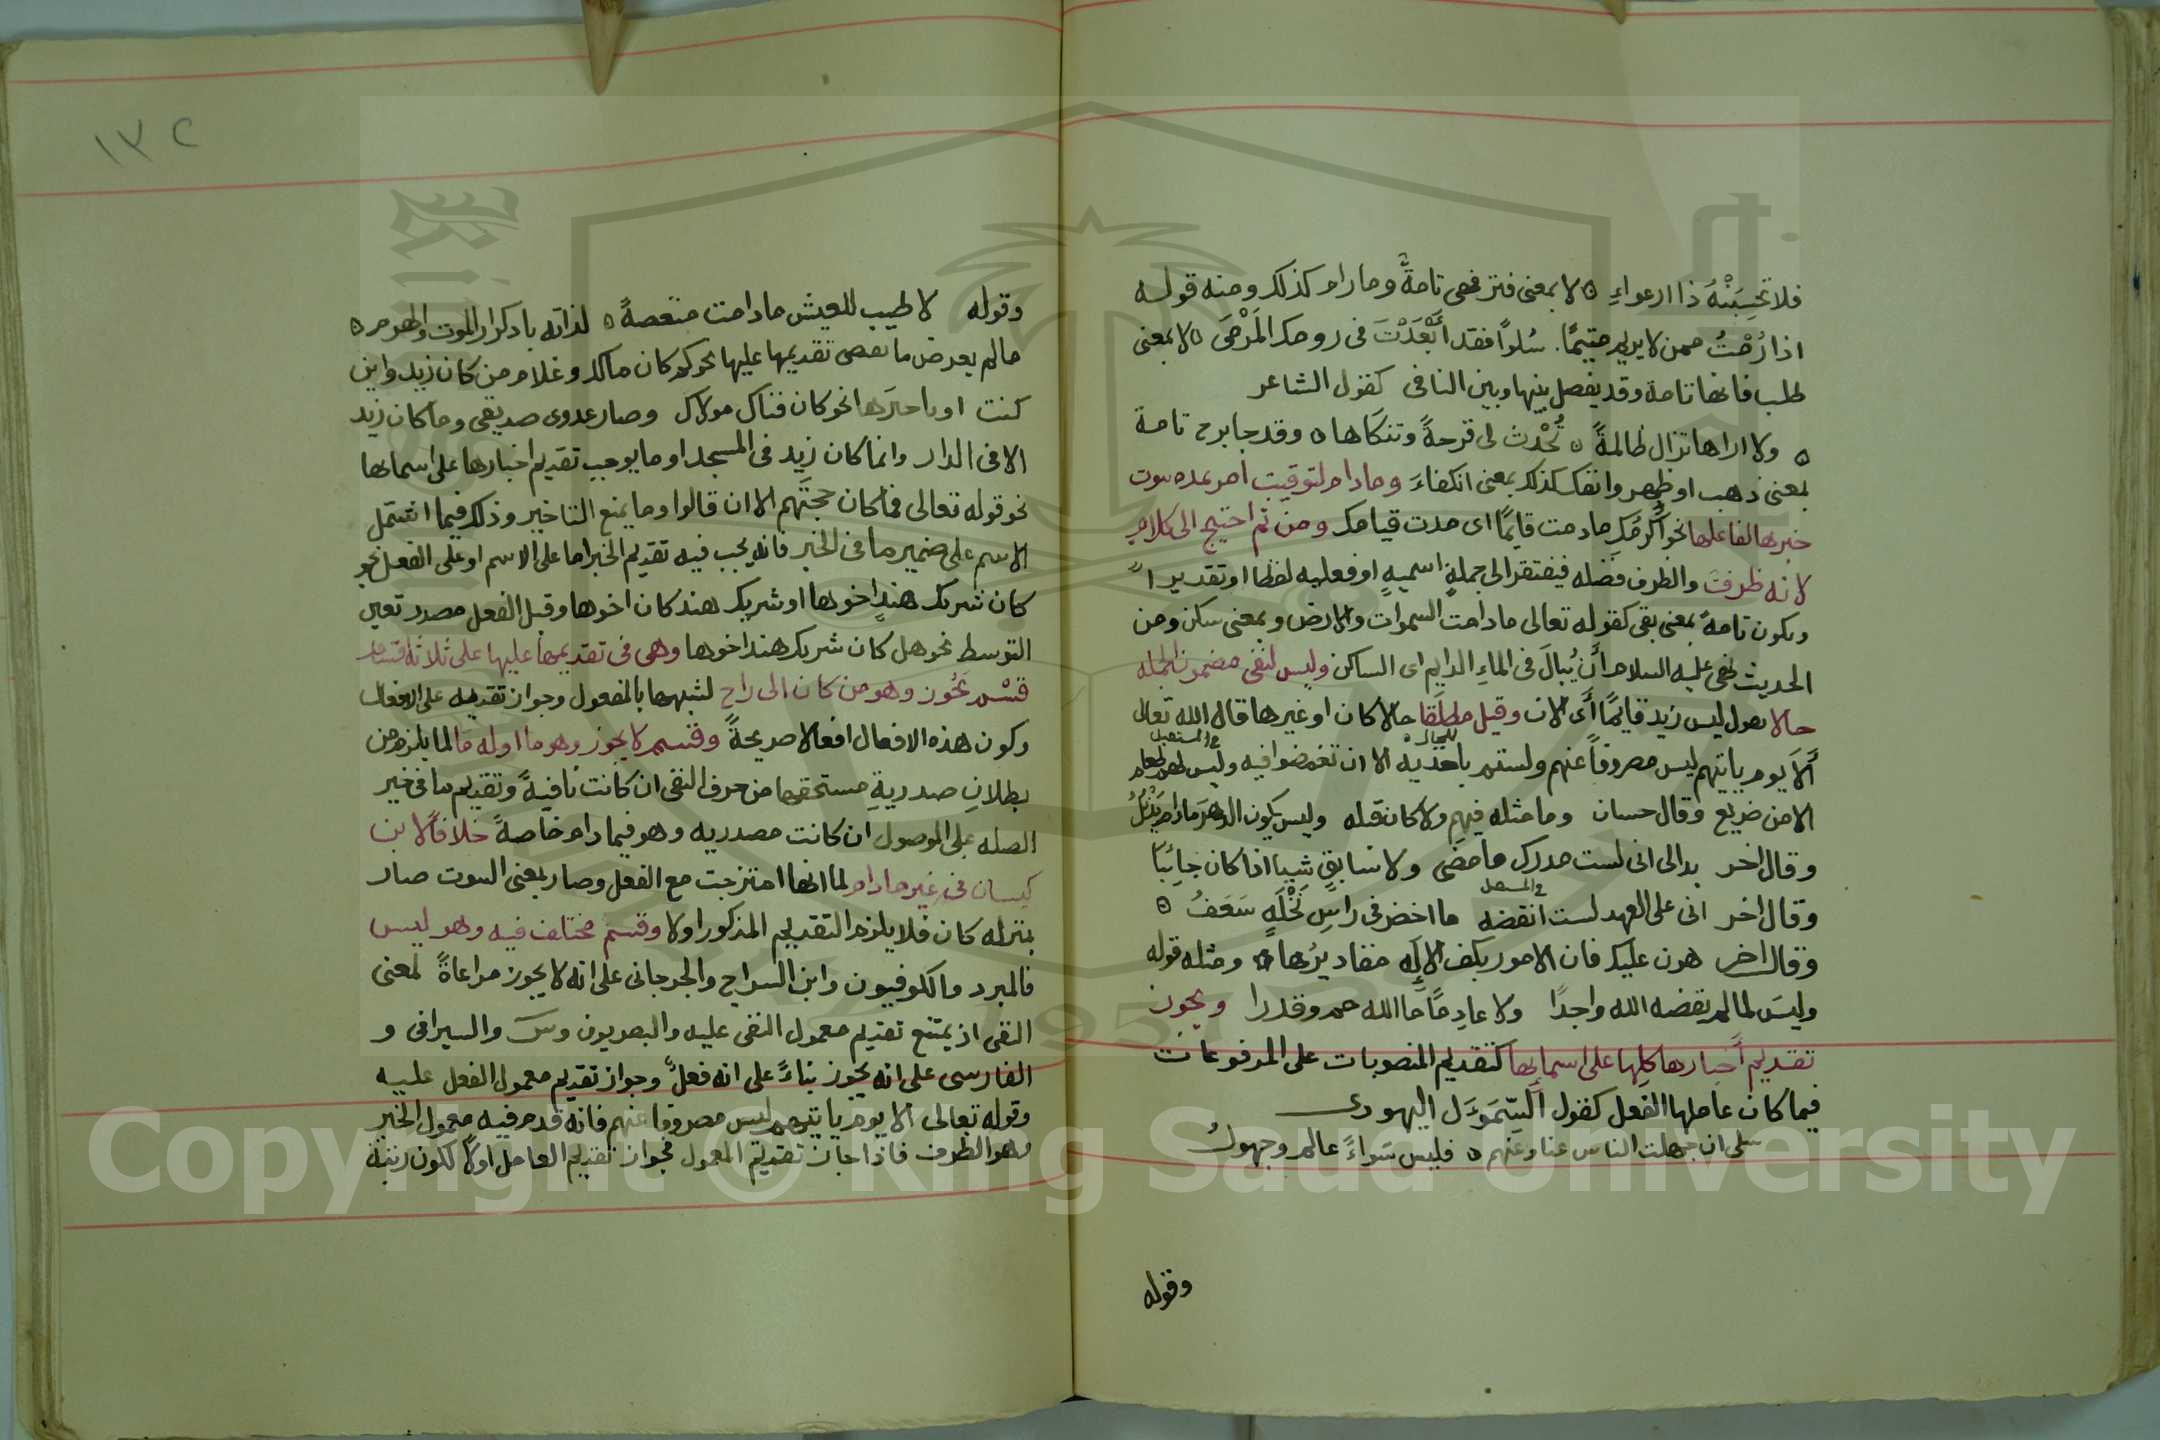 فلا تحسبنه ذا ارعواء ه لا بمعنى فتر فهى تامةٌ وما رام كذلك ومنه قوله
اذا رُمْتُ ممن لا يريم متيمًا سُلوًا فقد أَبْعَدْتَ فى رومك المَرْمَى ه لا بمعنى
طلب فانها تامة وقد يفصل بينها وبين النافى كقول الشاعر
ه ولا اراها تزال ظالمةً ه تُحْدث لى قرحةً وتنكاها ه وقد جا برح تامة
بمعنى ذهب او ظهر وانفك كذلك بمعنى انكفاءَ وما دام لتوقيت امر بمده ثبوت
خبرها لفاعلها نحو اكرمك ما دمت قايمًا اى مدت قيامك ومن ثم احتيج الى كلام
لانه ظرفٌ والظرف فضله فيفتقر الى جملةٍ اسميةٍ او فعليه لفظا او تقديرا
ويكون تامةً بمعنى بقى كقوله تعالى ما دامت السموات والارض وبمعنى سكن ومن
الحديث نهى عليه السلام أن يُبالَ فى الماءِ الدايم اى الساكن وليس لنفى مضمون الجمله
حالا تقول ليس زيد قائمًا أى الان وقيل مطلَقا حالا كان او غيرها قال الله تعالى
للحال ه فى المستقبل
أَلَا يوم ياتيهم ليس مصروفاً عنهم ولستم باخذيه الا ان تغمضوا فيه وليس لهم طعام
الا من ضريع وقال حسان وما مثله فيهم ولا كان قبله وليس يكون الدهرَ ما دام يَذْبُلُ
وقال اخر بدا لى انى لست مدرك ما مضى ولا سابقٍ شيئا اذا كان جائيا
فى المستقبل
وقال اخر انى على العهد لست انقضه ما اخضر فى راسِ نَخْلَةٍ سَعَفُ ه
وقال اخر هون عليك فان الامور بكف الإله مقاديرُها ه ومثله قوله
وليسَ لما لم يقضه الله واجدًا ولا عادِمًا ما الله حم وقدرا ويجوز
تقديم أخبارها كلها على اسمائها كتقديم المنصوبات على المرفوعات
فيما كان عاملها الفعل كقول السّمَوءَل اليهودى
سلى ان جهلت الناس عنا وعنهم ه فليس سَواءً عالم وجهولُ
وقوله
١٣٢
وقوله لا طيب للعيش ما دامت منغصةً ه لذاته بادكار الموت والهرم ه
ما لم يعرض ما يقتضى تقديمها عليها نحو كم كان مالك وغلام من كان زيد واين
كنت او تاخيرها نحو كان فتاك مولاك وصار عدوى صديقى وما كان زيد
الا فى الدار وانما كان زيد فى المسجد او ما يوجب تقديم اخبارها على اسمائها
نحو قوله تعالى فما كان حجتَهم الا ان قالوا وما يمنع التاخير وذلك فيما اشتمل
الاسم على ضمير ما فى الخبر فانه يجب فيه تقديم الخبر اما على الاسم او على الفعل نحو
كان شريك هندٍ اخوها او شريك هند كان اخوها وقبل الفعل مصدر تعين
التوسط نحو هل كان شريك هند اخوها وهى فى تقديمها عليها على ثلاثة اقسام
قسْم يجُوز وهو من كان الى راح لشبهها بالمفعول وجواز تقديمه على الافعال
وكون هذه الافعال افعالا صريحةً وقسم لا يجوز وهو ما اوله ما لما يلزم من
بطلانِ صدريةِ مستحقها من حرف النفى ان كانت نافيةً وتقديم ما فى خير
الصله على الموصول ان كانت مصدريه وهو فيما دام خاصةً خلافًا لابن
كيسان فى غير ما دام لما انها امتزجت مع الفعل وصار بمعنى الثبوت صار
بمنزله كان فلا يلزم التقديم المذكور اولا وقسم مختلف فيه وهو ليس
فالمبرد والكوفيون وابن السراج والجرجانى على انه لا يجوز مراعاةً لمعنى
النفى اذ يمتنع تقديم معمول النفى عليه والبصريون وس والسيرافى و
الفارسى على انه يجوز بناءً على انه فعلٌ وجواز تقديم معمول الفعل عليه
وقوله تعالى الا يوم ياتيهم ليس مصروفا عنهم فانه قدم فيه معمول الخبر
وهو الظرف فاذا جاز تقديم المعمول فجواز تقديم العامل اولًا لكون رتبة
Copyright © King Saud University
1957